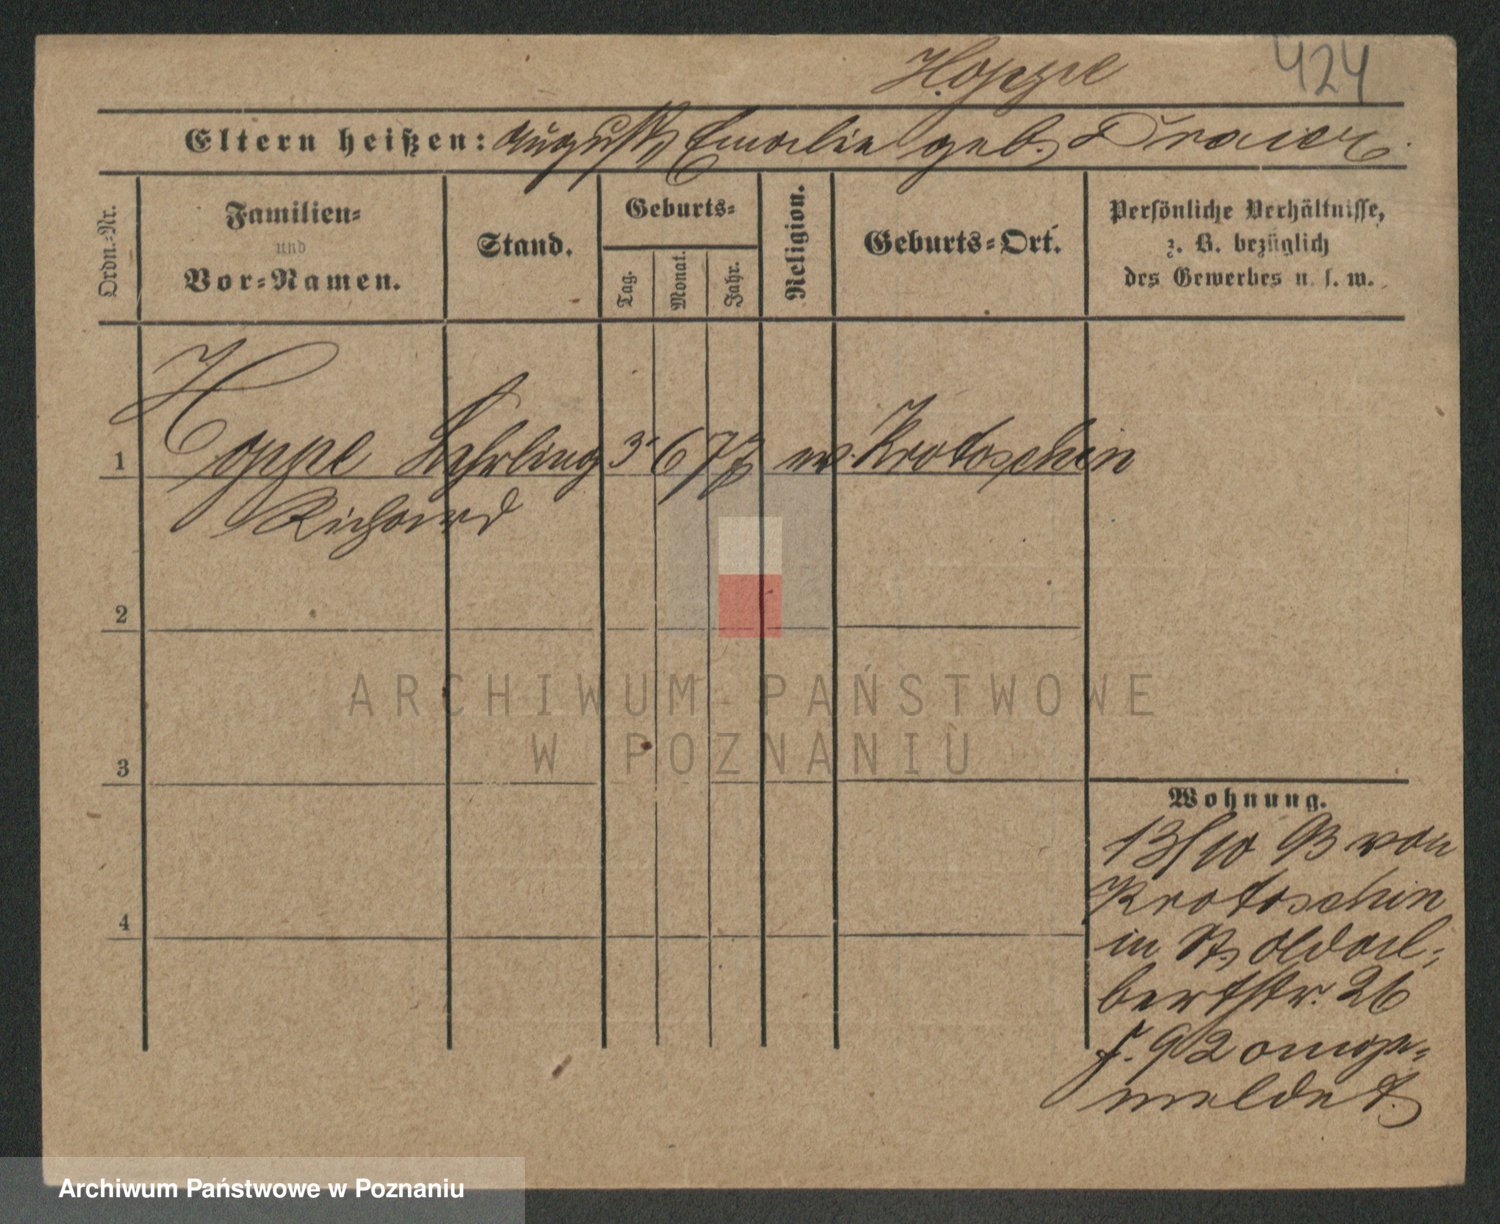 Hoppe
424
Eltern heißen: August, Emilie geb. Draier.
Ordn.-Nr.
Familien-
und
Vor-Namen.
Stand.
Geburts-
Tag.
Monat.
Jahr.
Religion.
Geburts-Ort.
Persönliche Verhältnisse,
z. B. bezüglich
des Gewerbes u. s. w.
1 Hoppe Lehrling 3 6 77 ev Krotoschin
Richard
2
3
4
ARCHIWUM PAŃSTWOWE
W POZNANIU
Wohnung.
13/10 93 von
Krotoschin
in St. Adal-
bertstr. 26
f. 92 ange-
meldet.
Archiwum Państwowe w Poznaniu